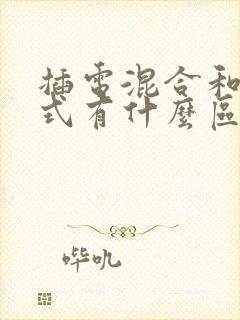 插電混合和
式有什麼區
哔吼